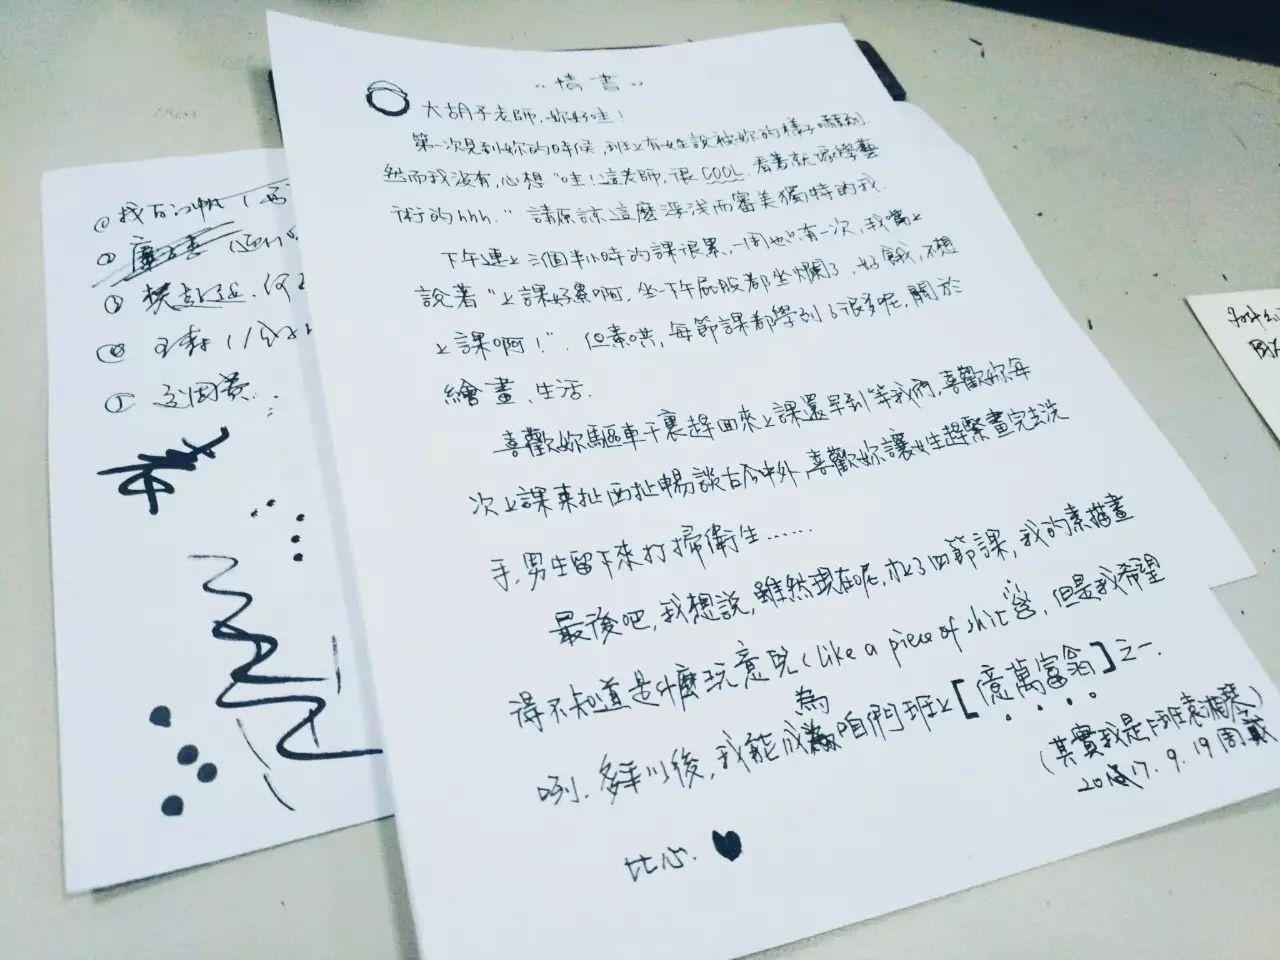 "情書"
大胡子老師,妳好哇!
第一次見到妳的時候,班上有女生說被妳的樣子嚇到,
然而我沒有,心想"哇!這老師,很COOL,看著就像學藝
術的hhh." 請原諒這麼淺而審美獨特的我.
下午連上三個半小時的課很累,一周也有一次,我嘴上
說著"上課好累啊,坐一下午屁股都坐爛了,好餓,不想
上課啊!". 但素哄,每節課都學到了很多呢,關於
繪畫、生活.
喜歡妳驅車千裏趕回來上課還早到等我們,喜歡妳每
次上課東扯西扯暢談古今中外,喜歡妳讓女生趕緊畫完去洗
手,男生留下來打掃衛生……
最後吧,我想說,雖然現在呢,上了四節課,我的素描畫
得不知道是什麼玩意兒(like a piece of shit),但是我希望
咧,多年以後,我能成為咱們班上[億萬富翁]之一.
(其實我是F班袁湘琴)
2017.9.19 周
比心.
①找
②
③
④
⑤